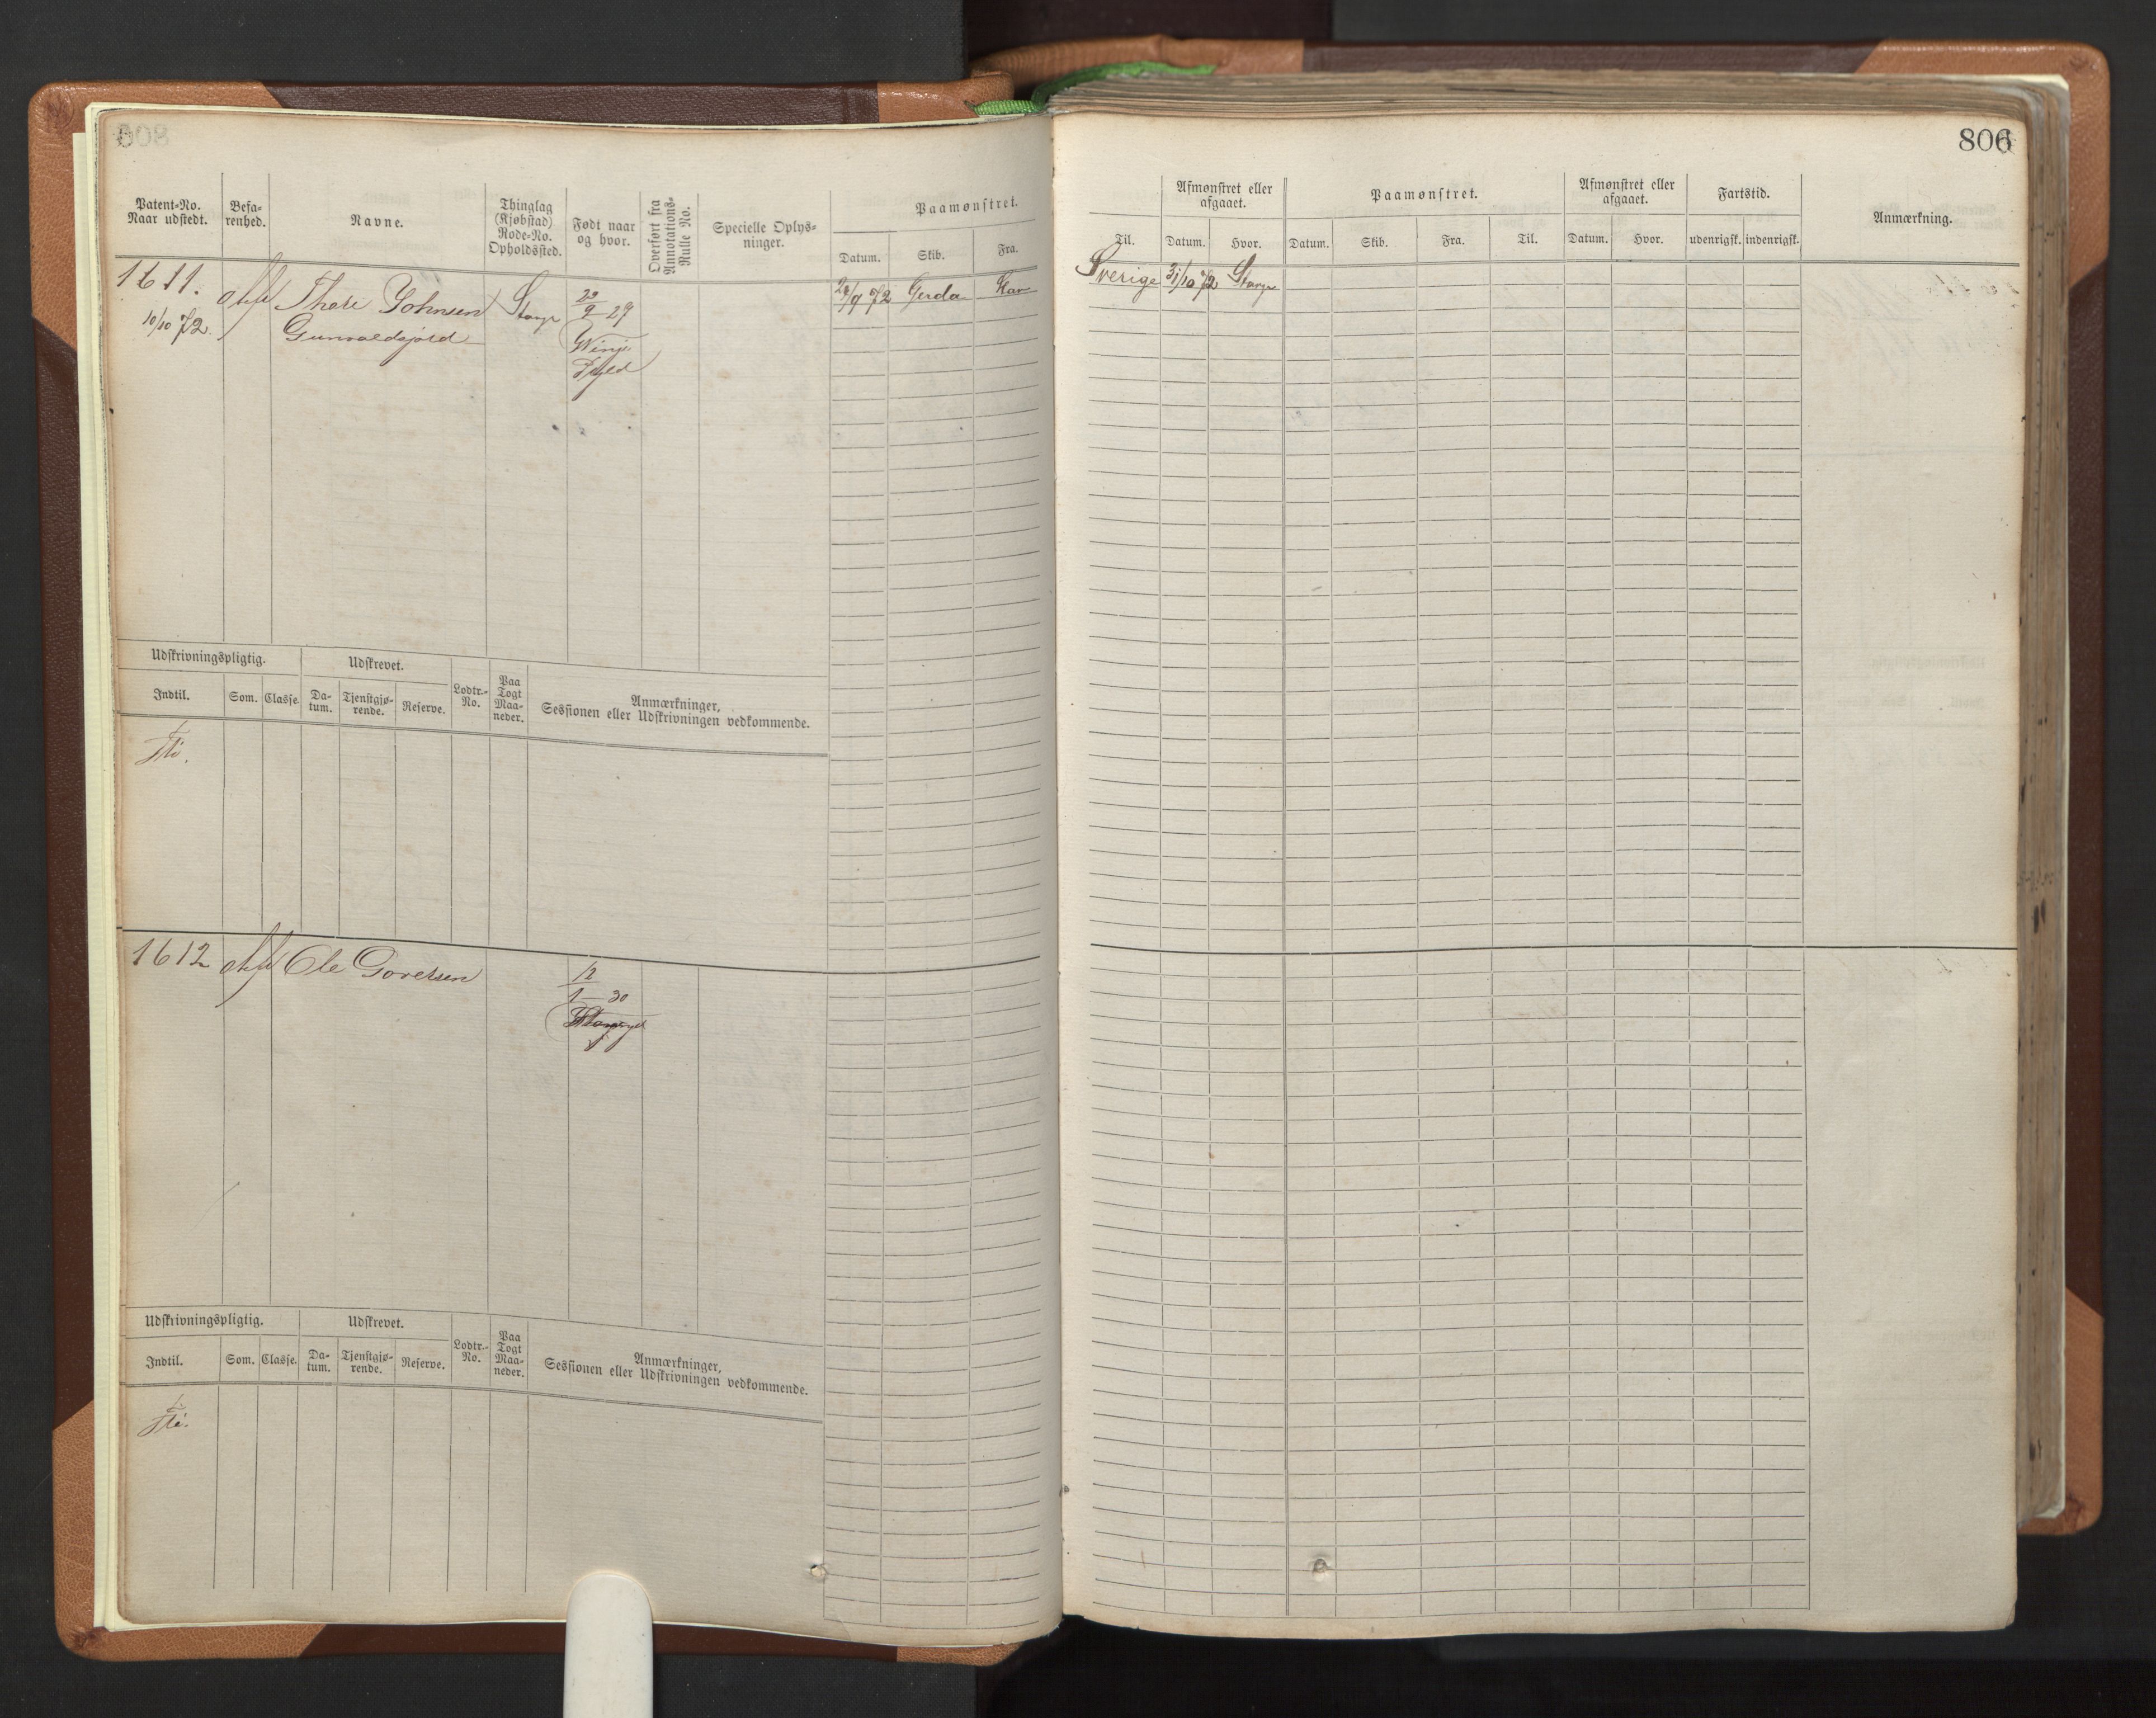 806
Patent-No.
Naar udstedt.
Befa-
renhed.
Navne.
Thinglag
(Kjøbstad)
Rode-No.
Opholdssted.
Født naar
og hvor.
Overført fra
Annotations-
Rulle No.
Specielle Oplys-
ninger.
Paamønstret.
Datum. Skib. Fra.
Til.
Afmønstret eller
afgaaet.
Datum. Hvor.
Paamønstret.
Datum. Skib. Fra. Til.
Afmønstret eller
afgaaet.
Datum. Hvor.
Fartstid.
udenrigsk. indenrigsk.
Anmærkning.
1611.
10/10 72.
Thore Johnsen
Gunvaldsjord
Stavgr
29
9 29
Gerda
Sverige 31/10 72 Stavgr
Udskrivningspligtig. Udskrevet.
Indtil. Som. Classe. Da-
tum. Tjenstgjø-
rende. Reserve. Lodtr.-
No. Paa
Togt
Maa-
neder. Anmærkninger,
Sessionen eller Udskrivningen vedkommende.
1612 Ole Goretsen
12
1 30
Udskrivningspligtig. Udskrevet.
Indtil. Som. Classe. Da-
tum. Tjenstgjø-
rende. Reserve. Lodtr.-
No. Paa
Togt
Maa-
neder. Anmærkninger,
Sessionen eller Udskrivningen vedkommende.